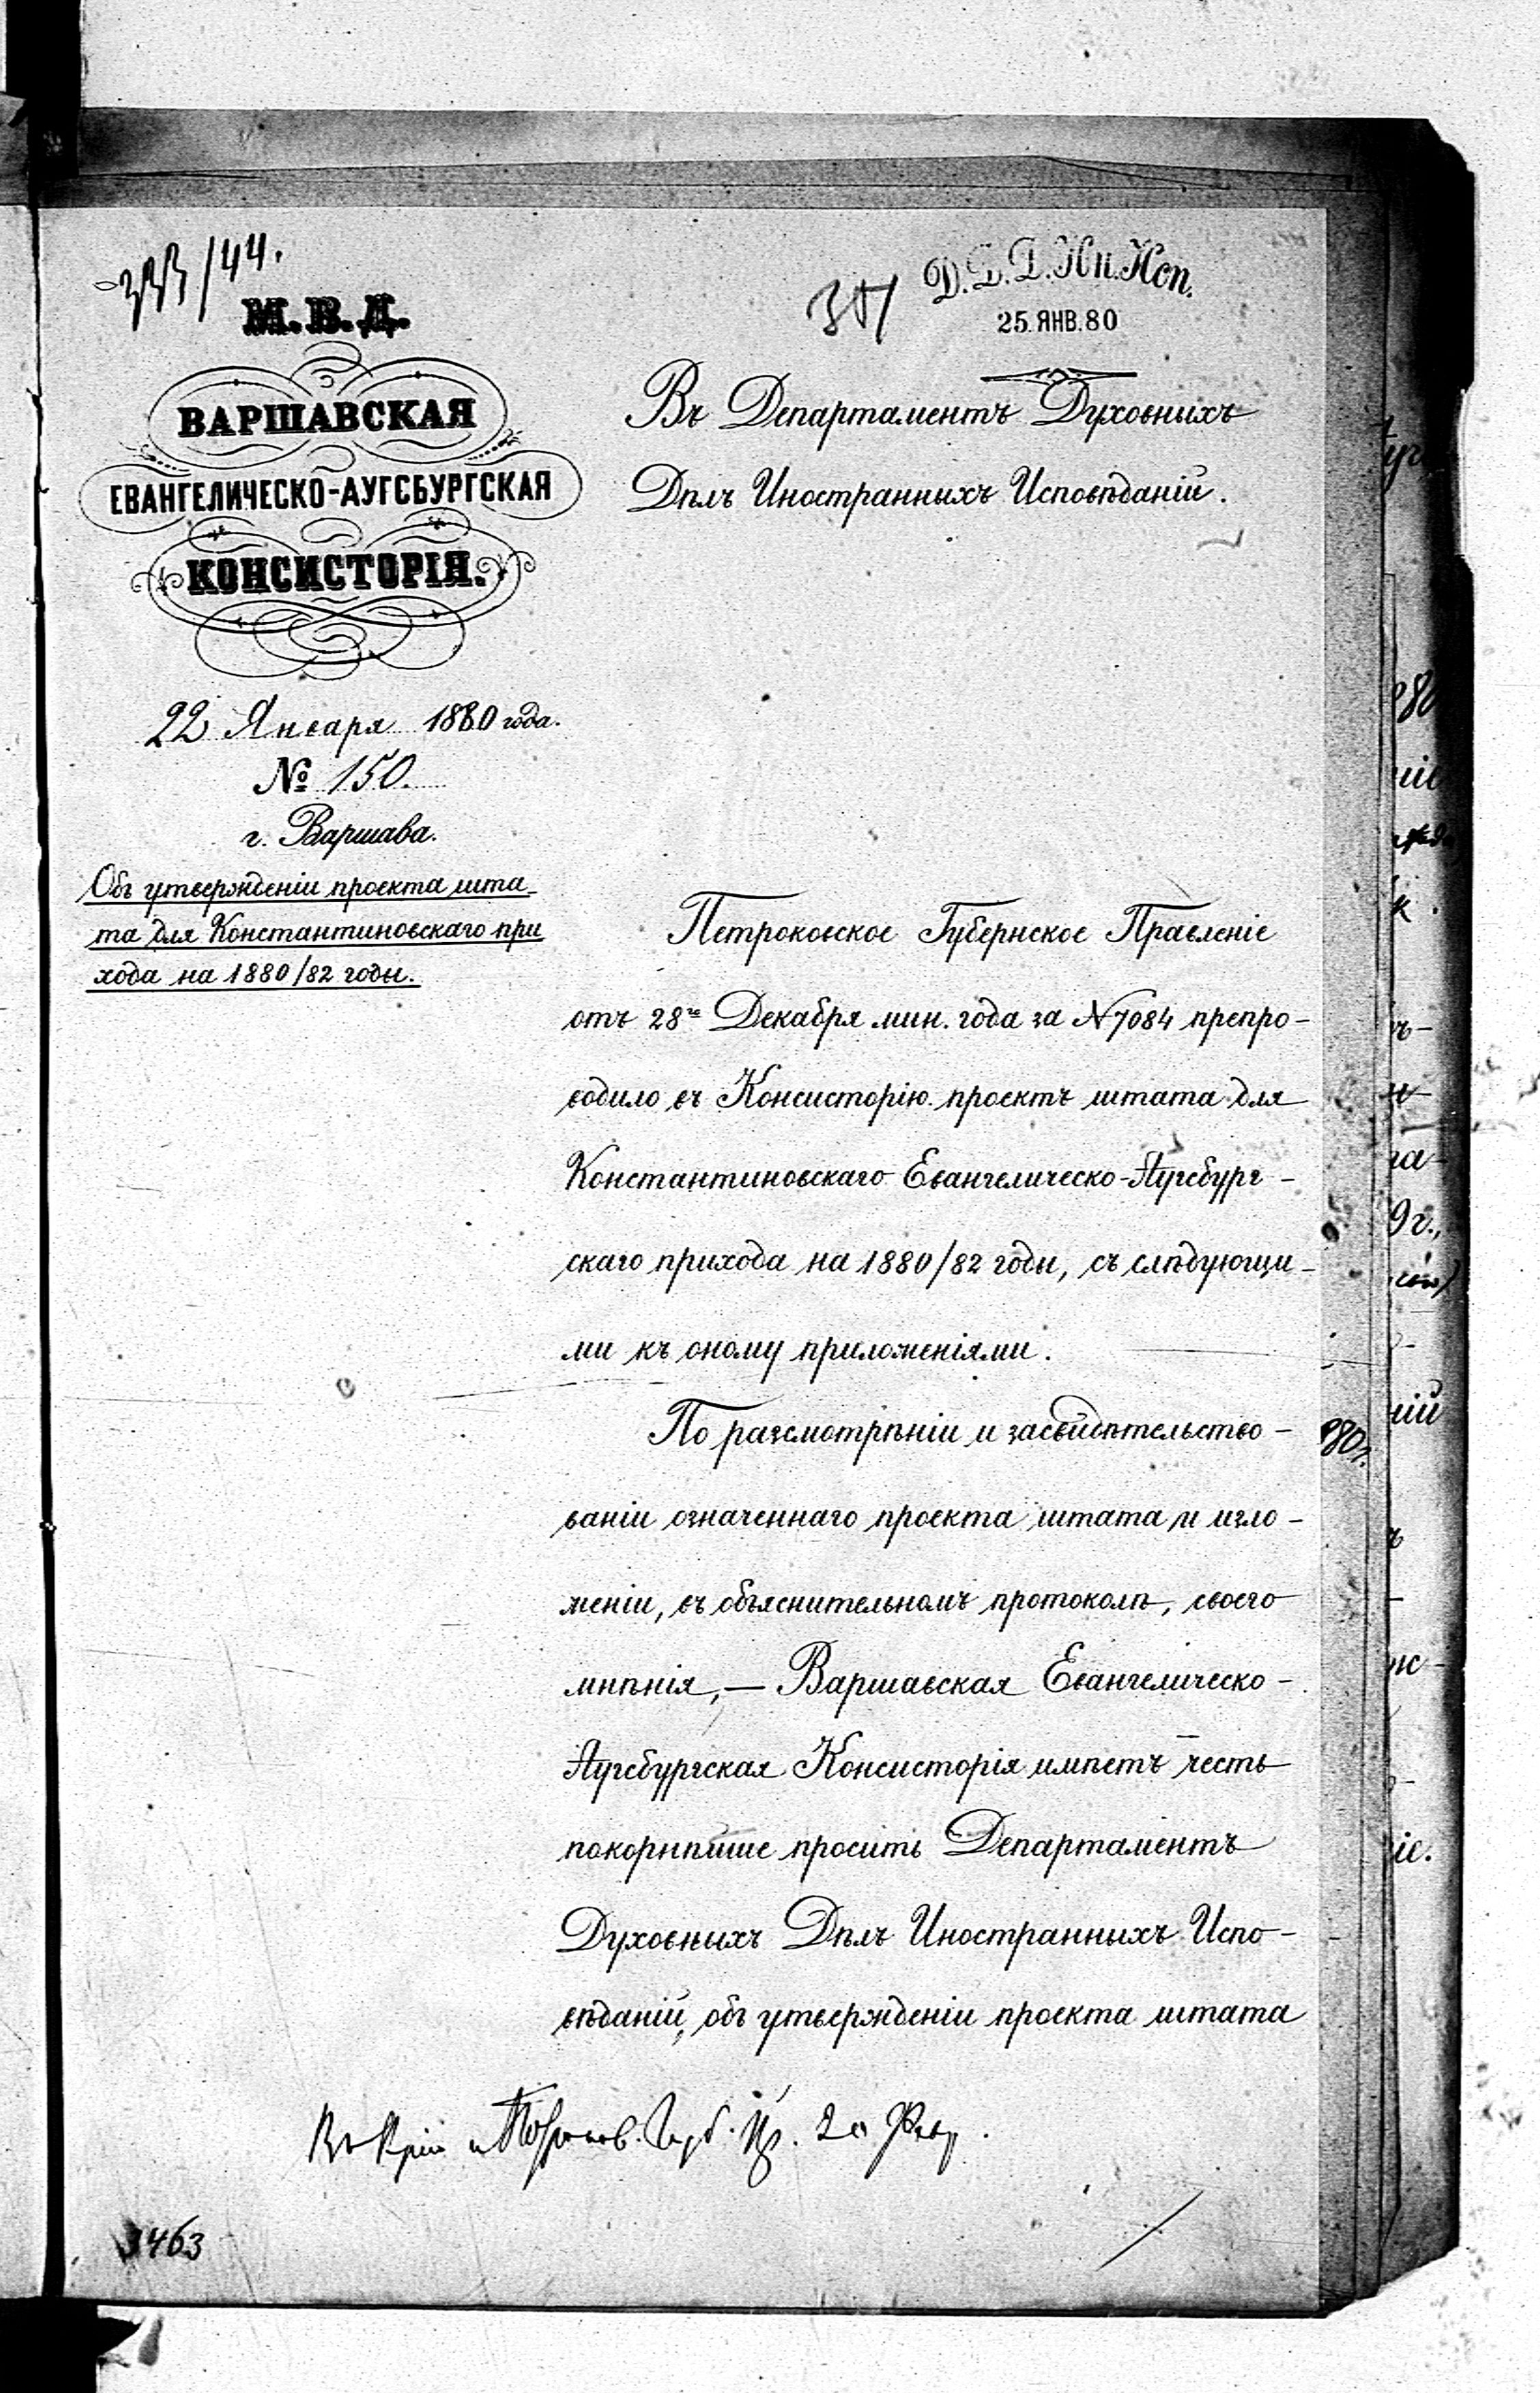 /44.
М.В.Д.
ВАРШАВСКАЯ
ЕВАНГЕЛИЧЕСКО-АУГСБУРГСКАЯ
КОНСИСТОРІЯ.
22 Января 1880 года.
№ 150.
г. Варшава.
Объ утвержденіи проекта шта-
та для Константиновскаго при
хода на 1880/82 годы.
Д.Д.Д.Ин.Исп.
25 ЯНВ.80
Въ Департаментъ Духовныхъ
Дѣлъ Иностранныхъ Исповѣданій.
Петроковское Губернское Правленіе
отъ 28го Декабря мин. года за N7084 препро-
водило въ Консисторію проектъ штата для
Константиновскаго Евангелическо-Аугсбург-
скаго прихода на 1880/82 годы, съ слѣдующи-
ми къ оному приложеніями.
По разсмотрѣніи и засвидѣтельство-
ваніи означеннаго проекта штата и изло-
женіи, въ объяснительномъ протоколѣ, своего
мнѣнія,— Варшавская Евангелическо-
Аугсбургская Консисторія имѣетъ честь
покорнѣйше просить Департаментъ
Духовныхъ Дѣлъ Иностранныхъ Испо-
вѣданій, объ утвержденіи проекта штата
Губ. Пр. 20 Февр.
3463